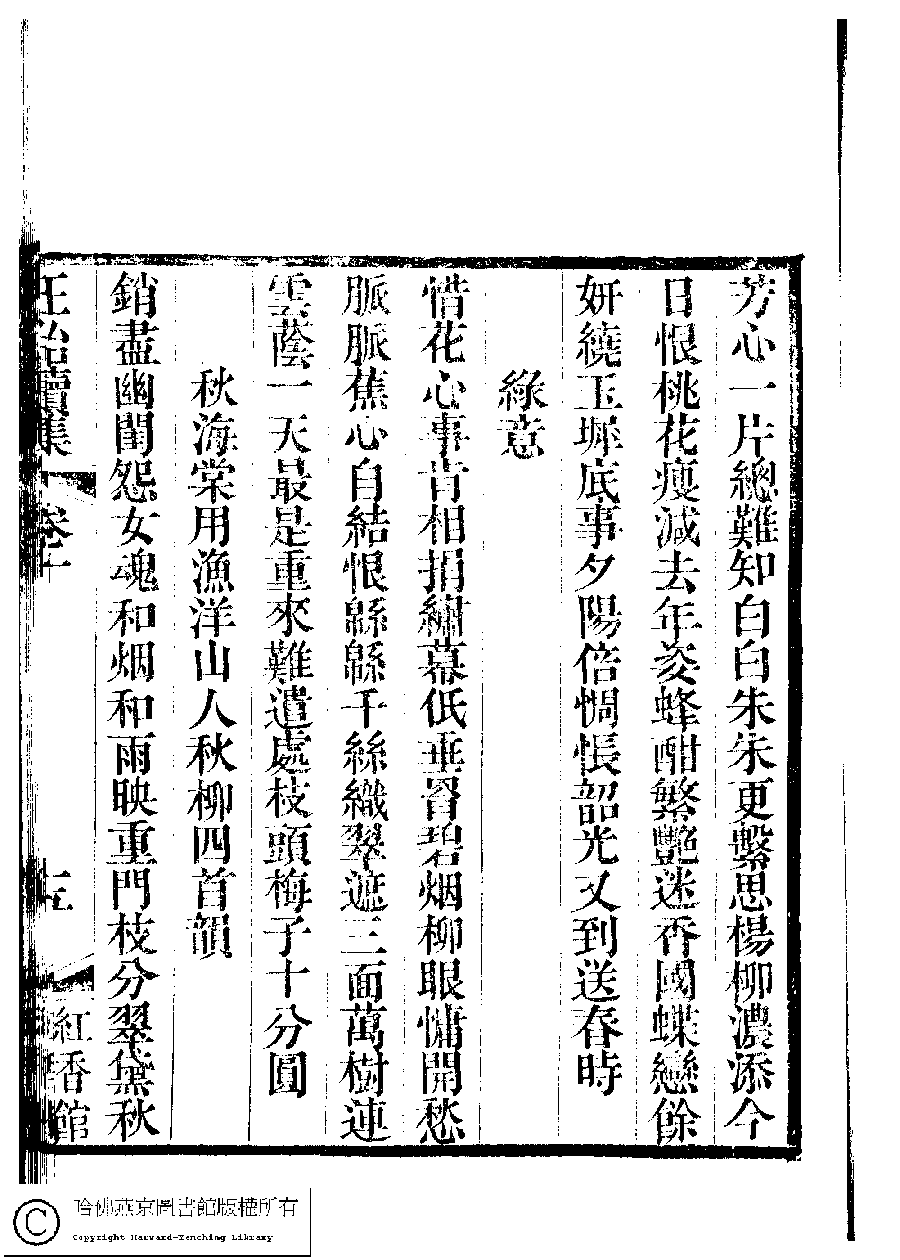 芳心一片總難知白白朱朱更繫思楊柳濃添今
日恨桃花瘦減去年姿蜂酣繁艷迷香國蝶戀餘
妍繞玉墀底事夕陽倍惆悵韶光又到送春時
綠意
惜花心事肯相捐繡幕低垂罨碧烟柳眼慵開愁
脈脈蕉心自結恨緜緜千絲織翠遮三面萬樹連
雲蔭一天最是重來難遣處枝頭梅子十分圓
秋海棠用漁洋山人秋柳四首韻
銷盡幽閨怨女魂和烟和雨映重門枝分翠黛秋
續集 卷十 十五 紅香館
哈佛燕京圖書館版權所有
Copyright Harvard-Yenching Library